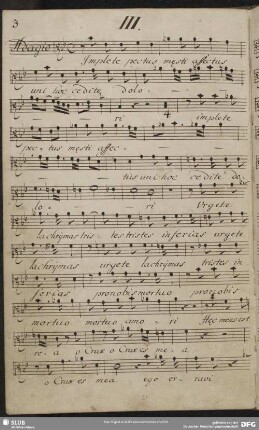 3
III.
Adagio
Implete pectus mæsti affectus
uni hoc cedite dolo-
ri implete
pec-tus mæsti affec-
tus uni hoc cedite do
lo- ri Urgete
lachrÿmas tris-tes tristes inferias urgete
lachrÿmas urgete lachrÿmas tristes in
ferias pro nobis mortuo pro nobis
mortuo mortuo amo-ri Hæc mens est
re-a o Crux o Crux es me-a
o Crux es mea ego er-ravi
SLUB
DFG